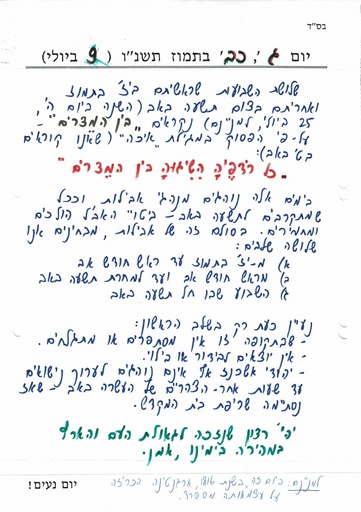 בס"ד
יום ג', כב' בתמוז תשנ"ו (9 ביולי)
שלושת השבועות שראשיתם ביז' בתמוז
ואחריתם בצום תשעה באב (השנה ביום ה',
25 ביולי, למנינם) נקראים "בין המצרים" -
על-פי הפסוק במגילת "איכה" (שאנו קוראים
בט' באב):
"כל רודפיה השיגוה בין המצרים"
בימים אלה נוהגים מנהגי אבילות וככל
שמתקרבים לתשעה באב - ביטויי האבל הולכים
ומחמירים. בסולם זה של אבילות, מבחינים אנו
שלושה שלבים:
א) מ-יז' בתמוז עד ראש חודש אב
ב) מראש חודש אב ועד למחרת תשעה באב
ג) השבוע שבו חל תשעה באב
נעיין כעת רק בשלב הראשון:
- שבתקופה זו אין מסתפרים או מתגלחים.
- אין יוצאים לבידור או בילוי.
- יהודי אשכנז אף אינם נוהגים לערוך נישואים
עד שעות אחר-הצהרים של העשרה באב - שאז
נסתיימה שריפת בית המקדש.
יהי רצון שנזכה לגאולת העם והארץ
במהירה בימינו, אמן.
יום נעים!
למנינם: ביום זה, בשנת 1816, ארגנטינה הכריזה
על עצמאותה מספרד.